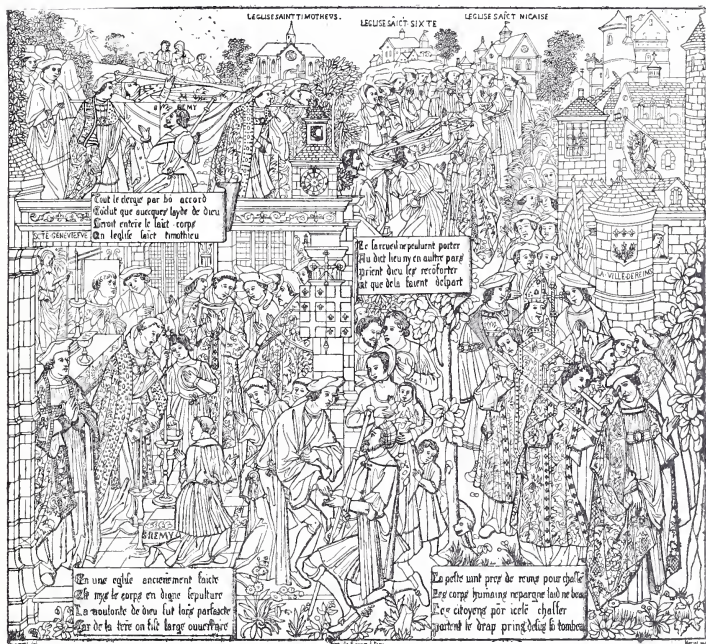 LEGLISE SAINT TIMOTHEVS.
LEGLISE SAĪCT SIXTE
LEGLISE SAĪCT NICAISE
REMY
Tout le clergie par bō accord
Cōclut que avecques layde de dieu
Seroit enterre le saīt corps
En leglise saīct timothieu
SCTE GENEVIEFVE
Le sarcueil ne peulvent porter
Au dict lieu ny en aultre part
prient dieu les recōforter
et que de la facent despart
LA VILLE DE REINS
S REMY
En une eglise anciennement faicte
Est mys le corps en digne sepulture
La voulonte de dieu fut lors parfaicte
Car de la tere on fist large ouverture
La peste vint pres de reims pour chasse
Les corps humains nepargne laid ne beau
Les citoyens pōr icele chasser
portent le drap pring desus sō tombeau